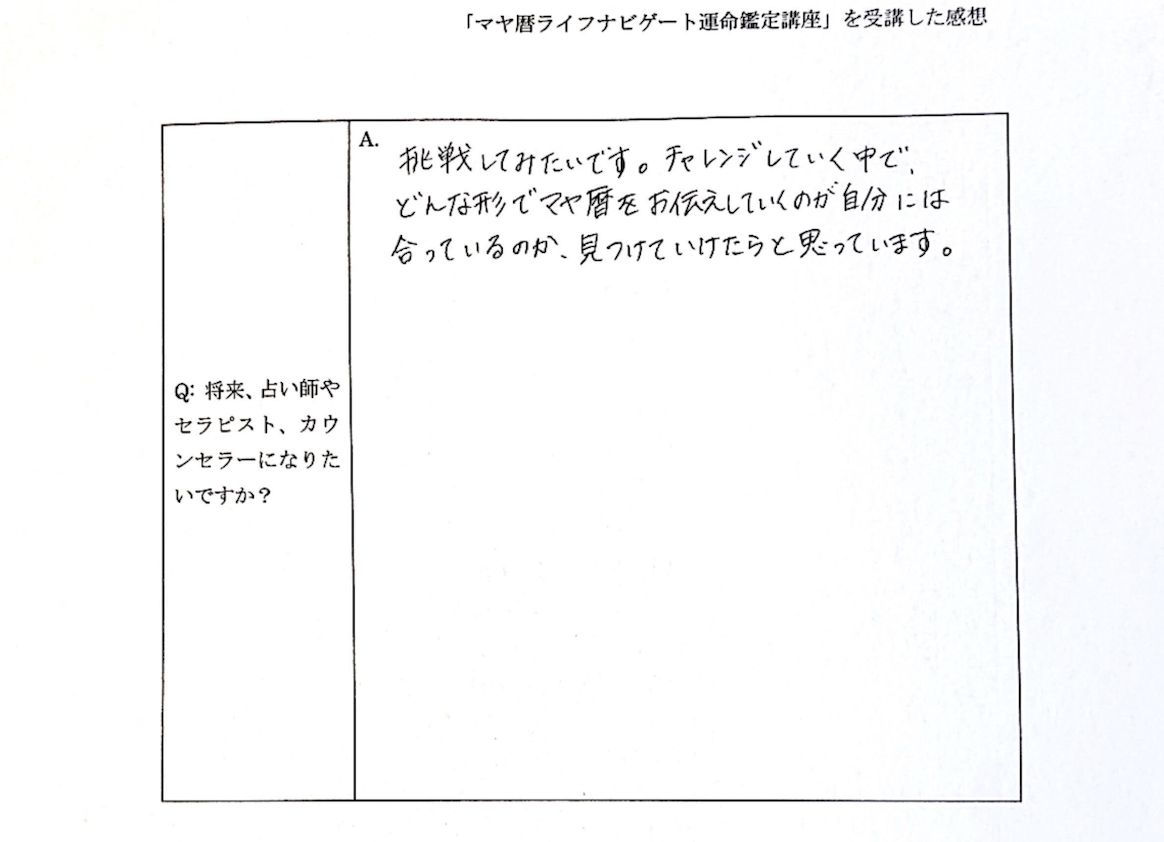 「マヤ暦ライフナビゲート運命鑑定講座」を受講した感想
Q: 将来、占い師や
セラピスト、カウ
ンセラーになりた
いですか？
A.
挑戦してみたいです。チャレンジしていく中で、
どんな形でマヤ暦をお伝えしていくのが自分には
合っているのか、見つけていけたらと思っています。